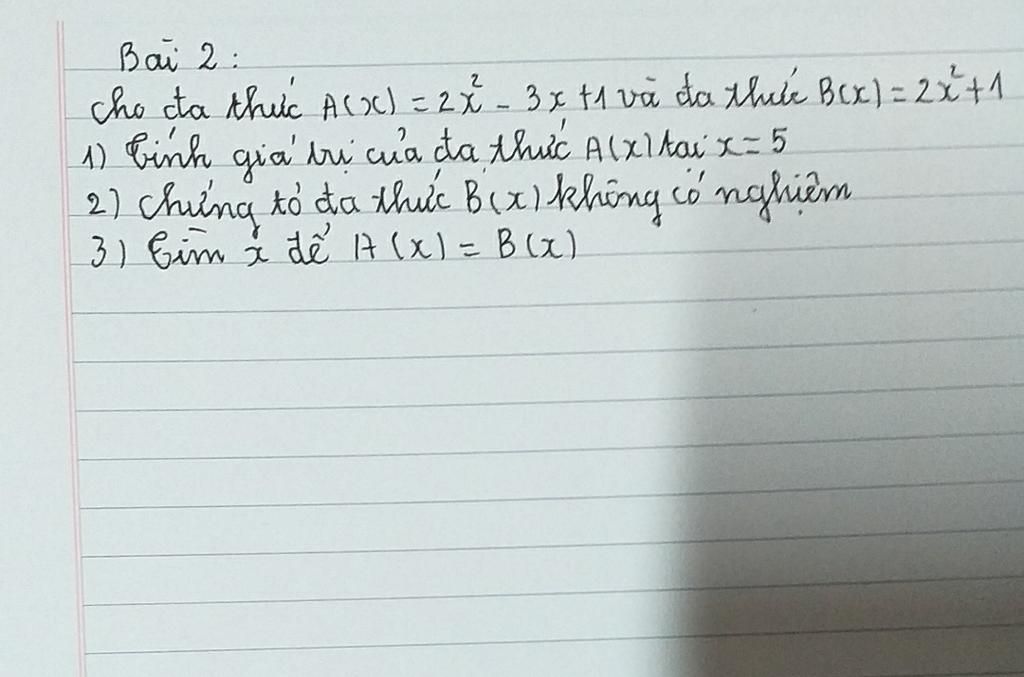 Bài 2 :
Cho đa thức A(x) = 2x² - 3x +1 và đa thức B(x) = 2x²+1
1) Tính giá trị của đa thức A(x) tại x = 5
2) Chứng tỏ đa thức B(x) không có nghiệm
3) Tìm x để A(x) = B(x)